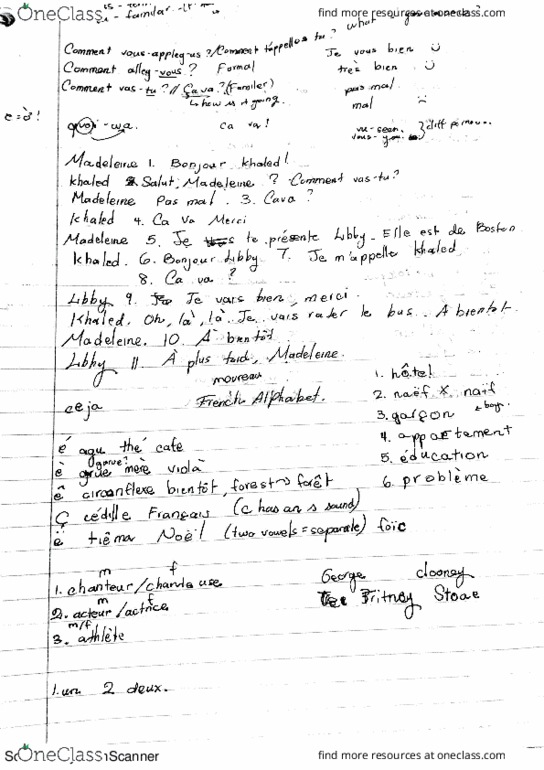 OneClass find more resources at oneclass.com
- familiar
what
Comment vous-appleg-us ? / Comment t'appelles tu ? Je vous bien
Comment alleg-vous ? Formal très bien
Comment vas-tu ? // Ça va ? (Familer) pas mal
how is it going. mal
e=è!
quoi -wa. ca va! vous-you
Madeleine 1. Bonjour Khaled!
Khaled 2. Salut, Madeleine ? Comment vas-tu?
Madeleine Pas mal. 3. Cava ?
Khaled 4. Ca Va Merci
Madeleine 5. Je te présente Libby - Elle est de Boston
Khaled. 6. Bonjour Libby 7. Je m'appelle Khaled
8. Ca va ?
Libby 9. Je vais bien, merci.
Khaled. Oh, là, là. Je vais rater le bus. A bientot.
Madeleine. 10. À bientôt
Libby 11. À plus tard, Madeleine.
eeja French Alphabet.
1. hôtel
2. naëf X naïf
3. garçon boy
4. appartement
5. éducation
6. problème
é agu thé café
è mère violà
ê circonflexe bientôt, forest → forêt
Ç cédille Français (c has an s sound)
ë tiéma Noël (two vowels = separate) foïc
m f
1. chanteur / chanteuse
m f
2. acteur / actrice
m/f
3. athlète
George Clooney
Britney Stone
1. un 2 deux.
OneClass Scanner find more resources at oneclass.com